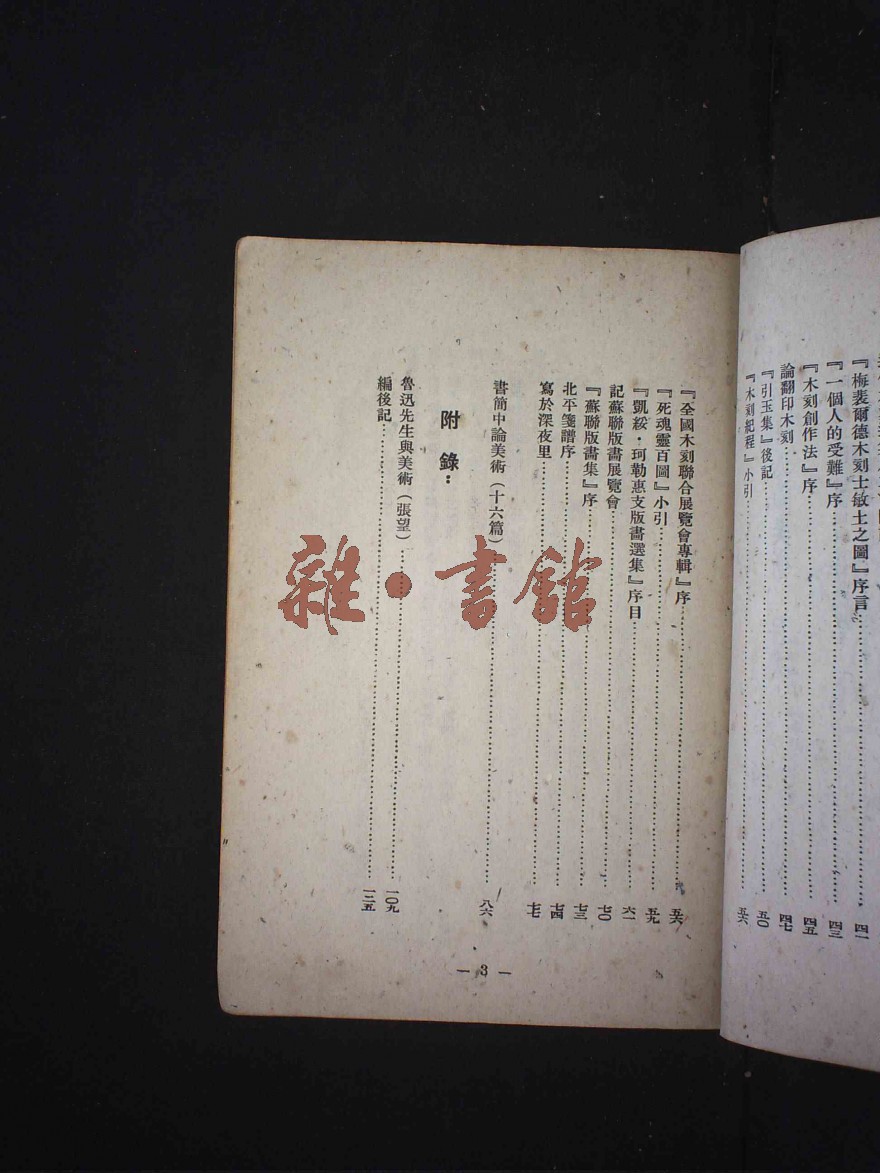 『梅斐爾德木刻士敏土之圖』序言 四一
『一個人的受難』序 四三
『木刻創作法』序 四五
論翻印木刻 四七
『引玉集』後記 五〇
『木刻紀程』小引 五六
『全國木刻聯合展覽會專輯』序
『死魂靈百圖』小引 五九
『凱綏·珂勒惠支版畫選集』序目 六一
記蘇聯版畫展覽會 七〇
『蘇聯版畫集』序 七三
北平箋譜序 七四
寫於深夜里 七七
書簡中論美術(十六篇) 八六
附錄:
魯迅先生與美術(張望) 一〇九
編後記 一二五
— 3 —
雜·書館